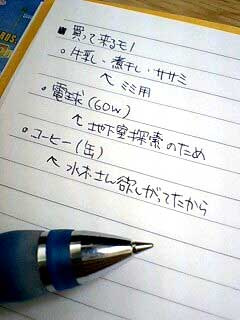 ■ 買って来るモノ
○ 牛乳・煮干し・ササミ
↖ ミミ用
○ 電球(60W)
↖ 地下室探索のため
○ コーヒー(缶)
↖ 水木さん欲しがってたから